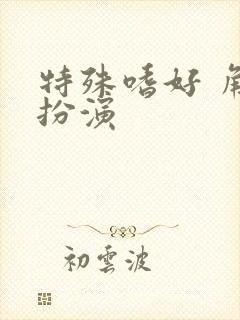 特殊嗜好 角
扮演
初雲波